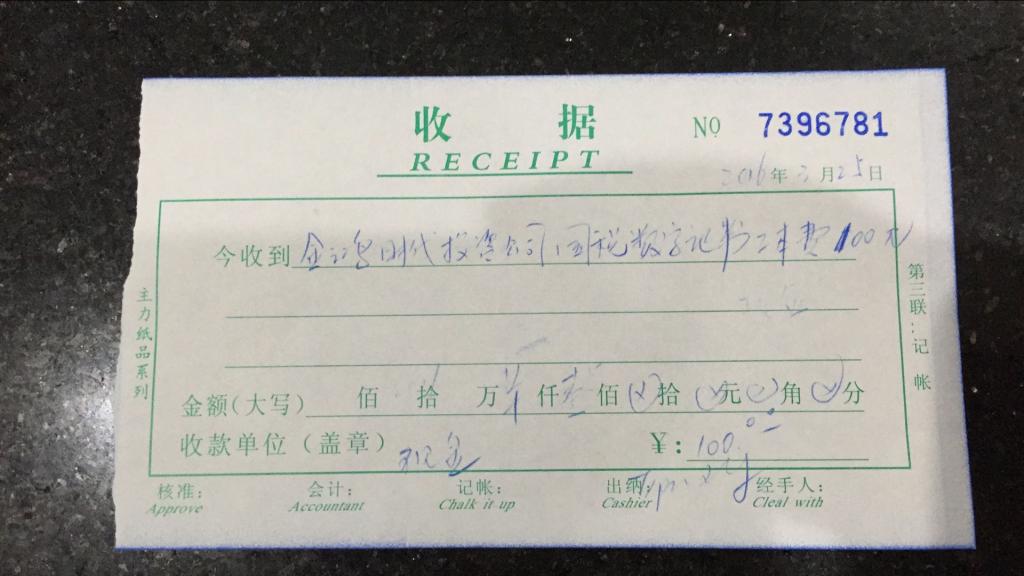 收 据
RECEIPT
№ 7396781
2016年3月25日
今收到 时代投资公司国税数字证书工本费100元
金额(大写) 佰 拾 万 仟 壹 佰 拾 元 角 分
收款单位(盖章) 现金 ¥: 100.00
核准: 会计: 记帐: 出纳: 经手人:
Approve Accountant Chalk it up Cashier Cleal with
主力纸品系列
第三联:记 帐